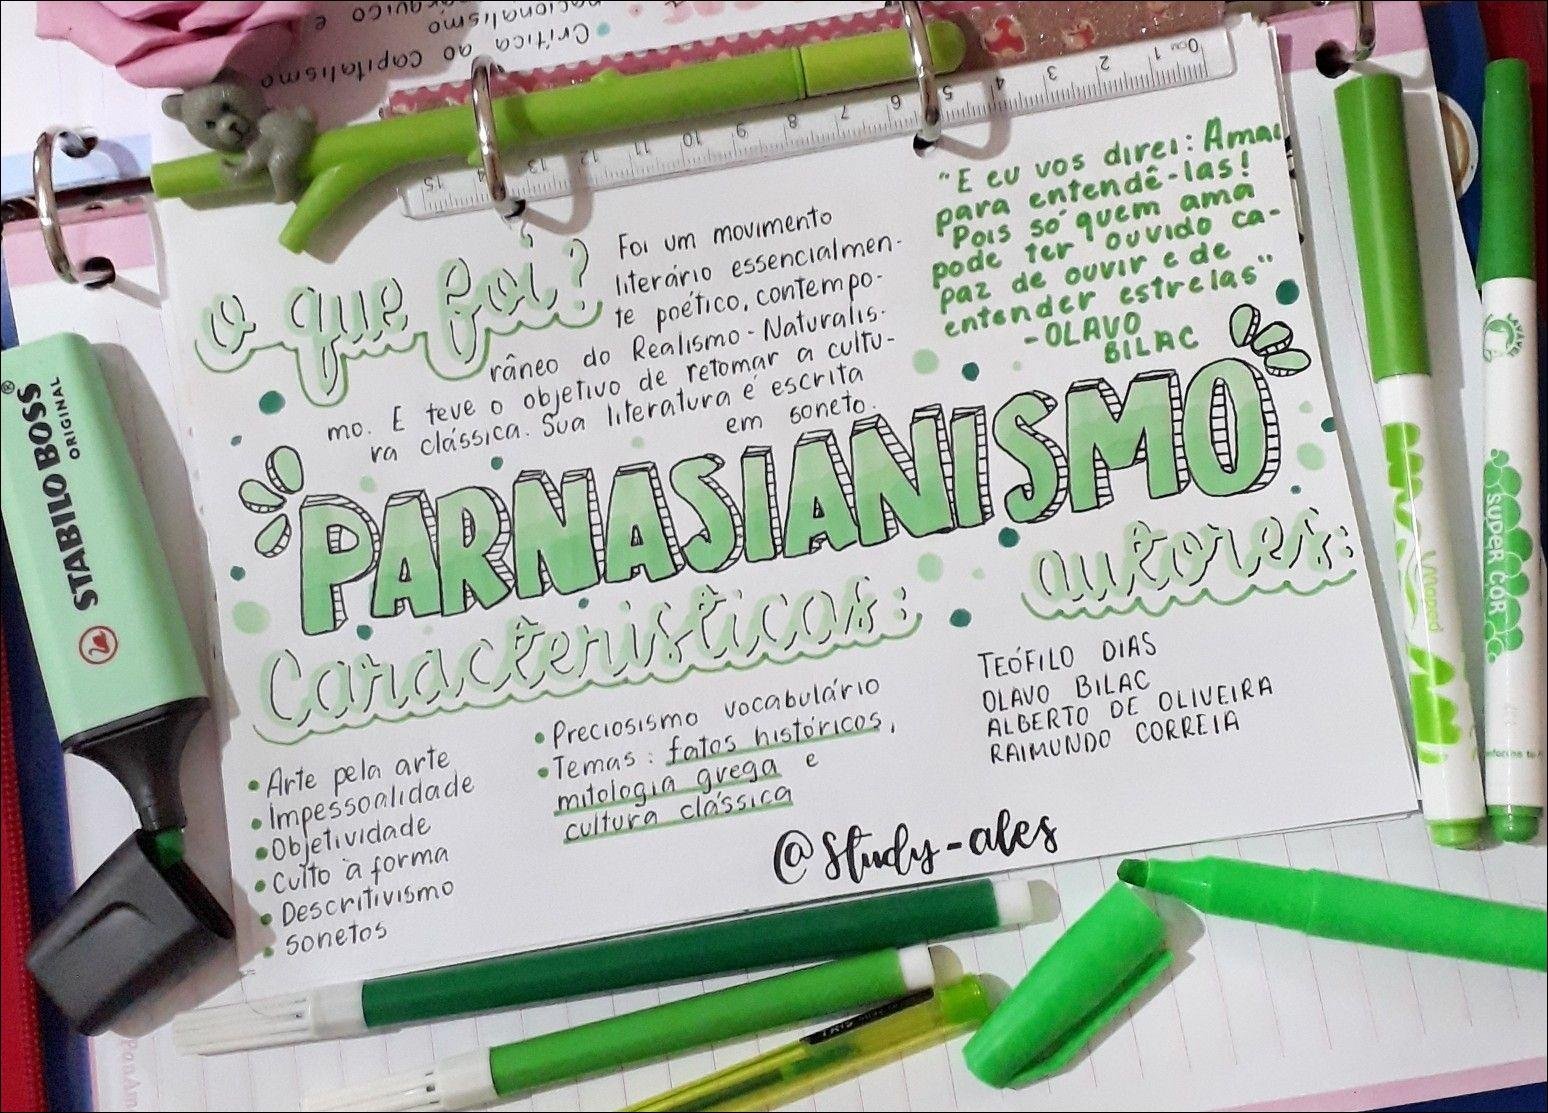 Crítica ao capitalismo
"E eu vos direi: Amai
para entendê-las!
Pois só quem ama
pode ter ouvido ca-
paz de ouvir e de
entender estrelas"
- OLAVO
BILAC
o que foi?
Foi um movimento
literário essencialmen-
te poético, contempo-
râneo do Realismo - Naturalis-
mo. E teve o objetivo de retomar a cultu-
ra clássica. Sua literatura é escrita
em soneto.
PARNASIANISMO
Características:
• Arte pela arte
• Impessoalidade
• Objetividade
• Culto à forma
• Descritivismo
• Sonetos
• Preciosismo vocabulário
• Temas: fatos históricos,
mitologia grega e
cultura clássica
autores:
TEÓFILO DIAS
OLAVO BILAC
ALBERTO DE OLIVEIRA
RAIMUNDO CORREIA
@study-ales
STABILO BOSS®
ORIGINAL
SUPER COR
0cm 1 2 3 4 5 6 7 8 9 10 11 12 13 15